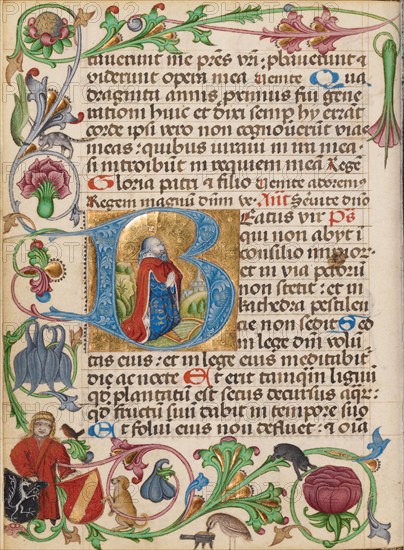 tauerunt me pr̄es vr̄i : p̄bauerunt ⁊
viderunt opera mea venite Qua
draginta annis proximus fui gene
rationi huic et dixi semp̄ hy errāt
corde ipsi vero non cognouerunt vias
meas : quibus iuraui in ira mea
si introibunt in requiem meā Regē
Gloria patri ⁊ filio venite adoremꝰ
Regem magnum dūm ve. Añt Seruite dn̄o
Beatus vir Ps
qui non abijt ī
consilio impior̄
et in via pctōrū
non stetit : et in
kathedra pestilen
cie non sedit Sed
in lege dn̄i volū
tas eius : et in lege eius meditabit̄
die ac nocte Et erit tamqm̄ lignū
qd̄ plantatū est secus decursus aqr̄
qd̄ fructū suū dabit in tempore suo
Et foliū eius non defluet : et oīa